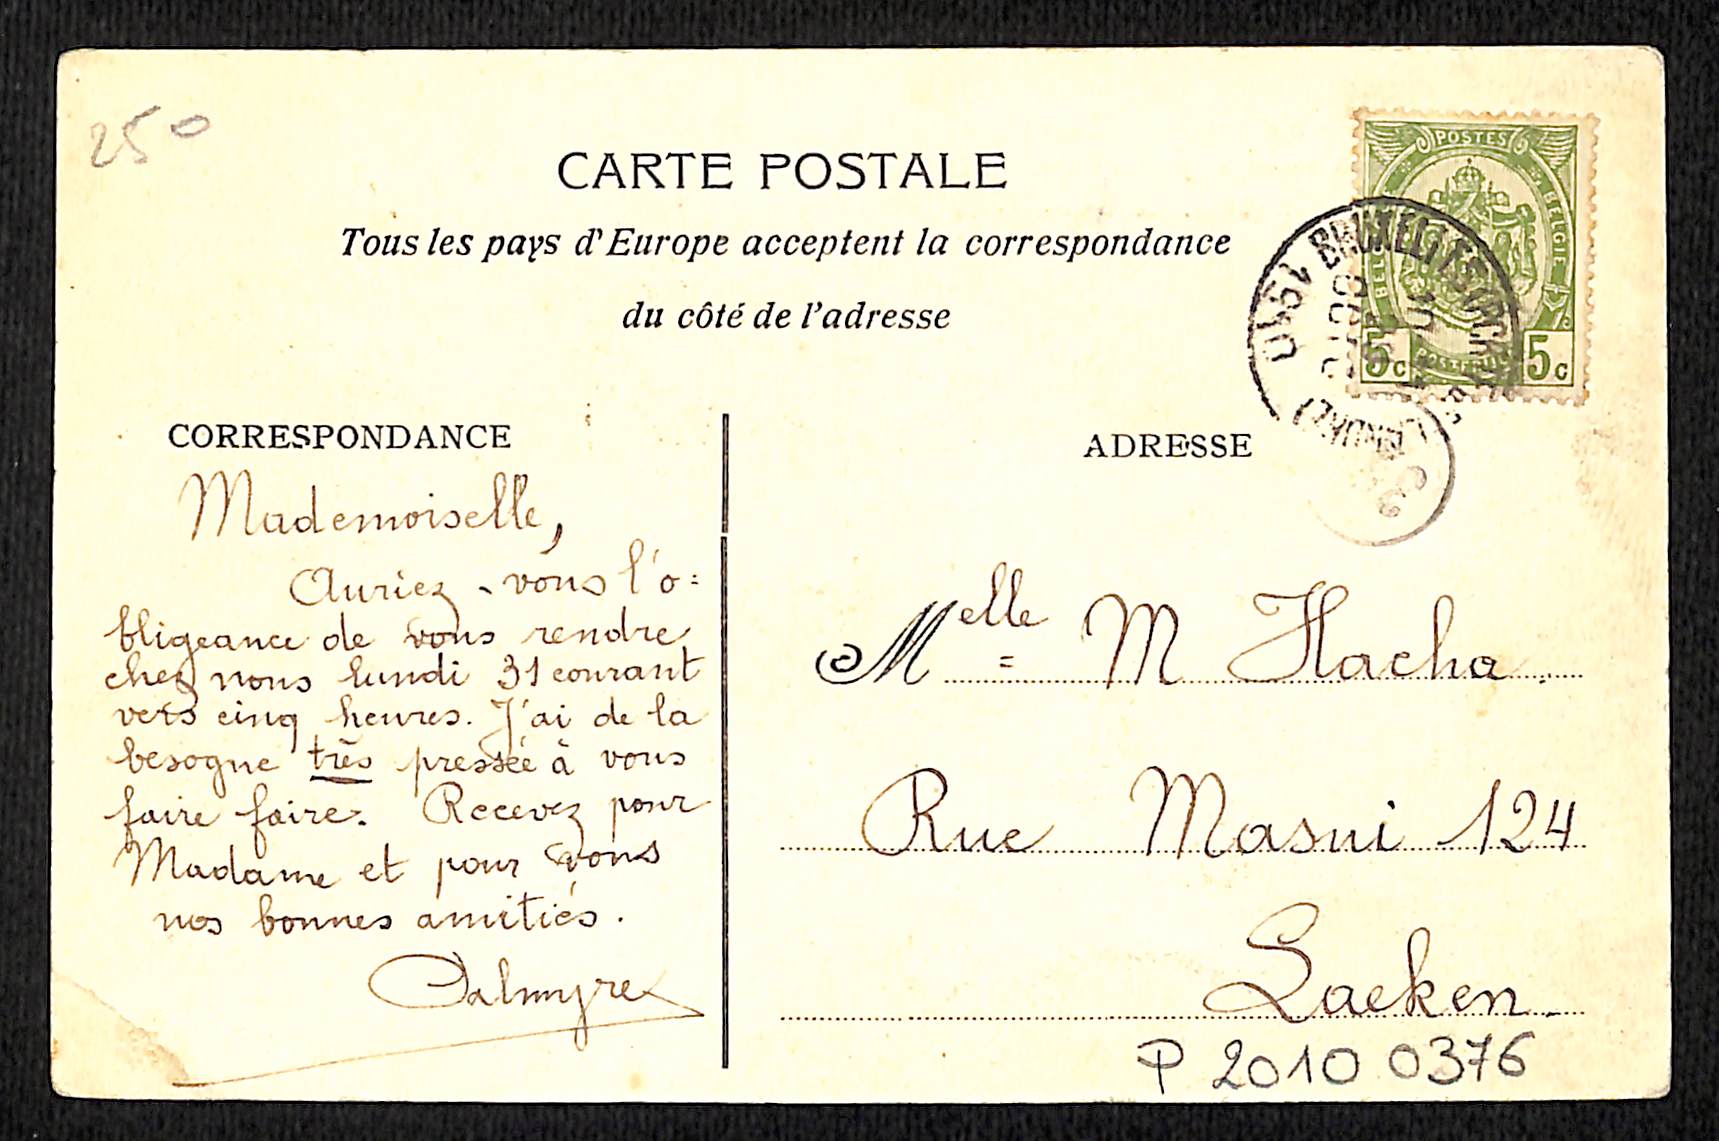 250
CARTE POSTALE
Tous les pays d'Europe acceptent la correspondance
du côté de l'adresse
POSTES
BELGIE
5c 5c
BRUXELLES
CORRESPONDANCE
Mademoiselle,
Auriez-vous l'o=
bligeance de vous rendre
chez nous lundi 31 courant
vers cinq heures. J'ai de la
besogne très pressée à vous
faire faire. Recevez pour
Madame et pour vous
nos bonnes amitiés.
Palmyre
ADRESSE
Melle M Hacha.
Rue Masui 124
Laeken.
P 2010 0376